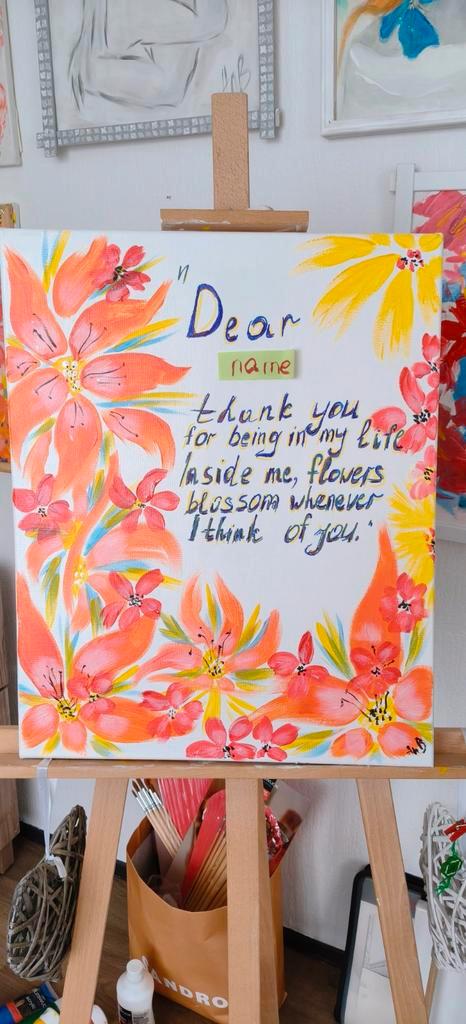 "Dear
name
thank you
for being in my life
Inside me, flowers
blossom whenever
I think of you."
ANDRO